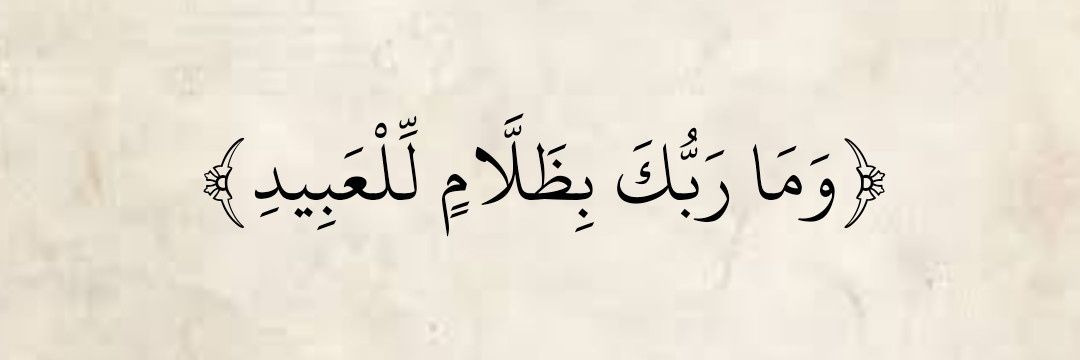 ﴿وَمَا رَبُّكَ بِظَلَّامٍ لِّلْعَبِيدِ﴾